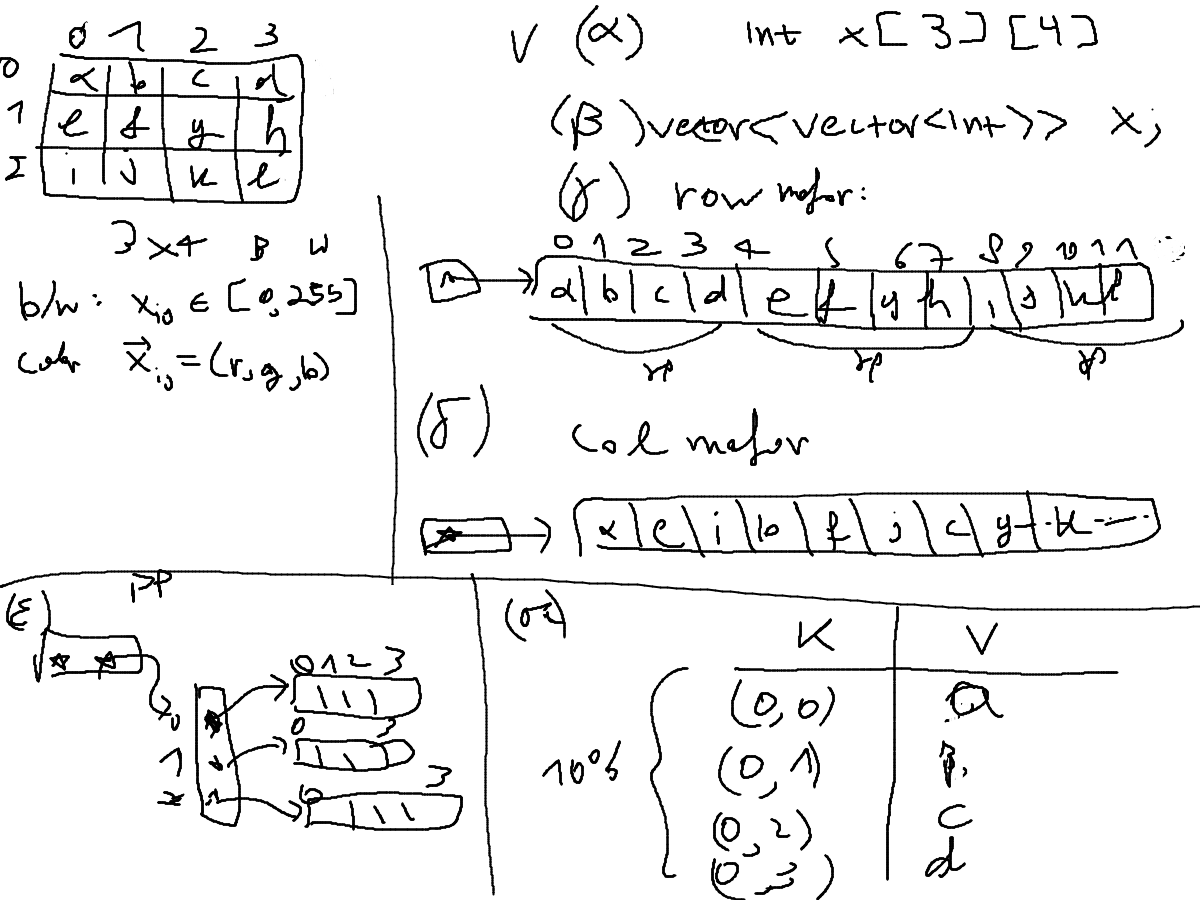 0 1 2 3
0 a b c d
1 e f g h
2 i j k l
3x4 B W
b/w: x_ij ∈ [0,255]
color x⃗_ij = (r,g,b)
V (α) int x[3][4]
(β) vector<vector<int>> x;
(γ) row major:
0 1 2 3 4 5 6 7 8 9 10 11
a b c d e f g h i j k l
(δ) col major
* a e i b f j c g k
(ε) **
* *
0 0 1 2 3
1 0 3
2 0 3
(στ) K V
(0,0) a
10% (0,1) b
(0,2) c
(0,3) d